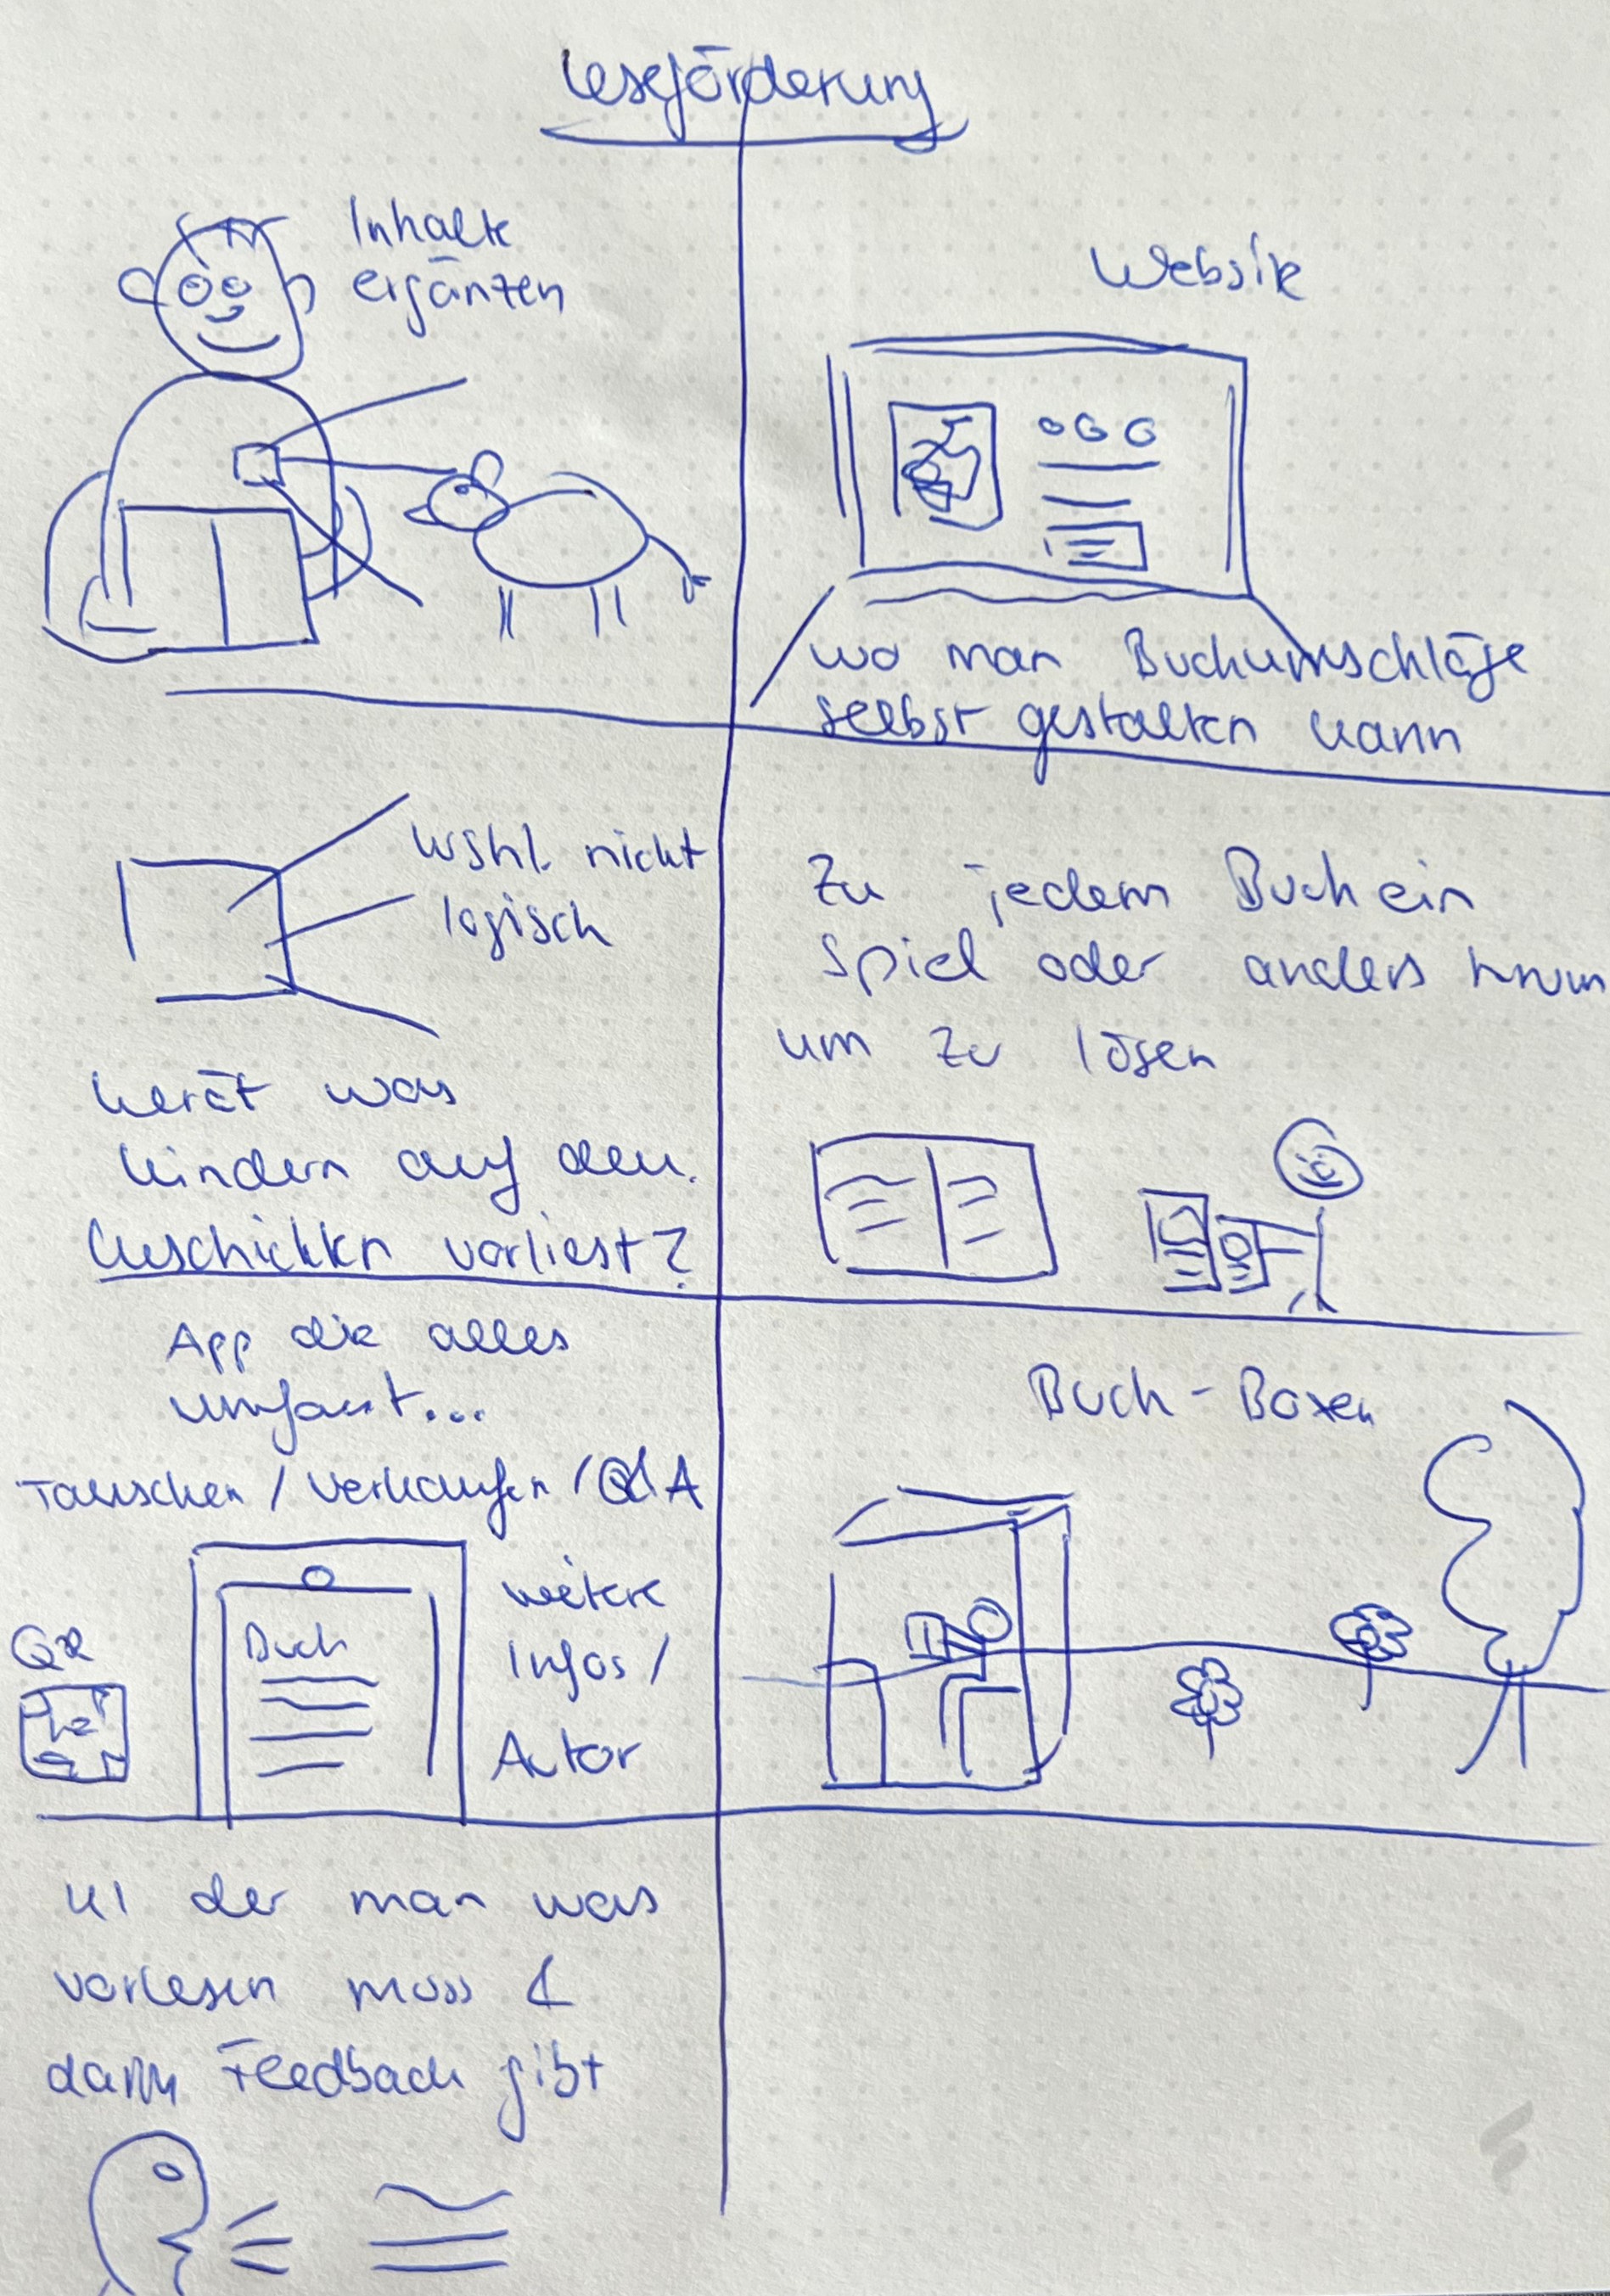 Leseförderung
Inhalte
ergänzen
Website
wo man Buchumschläge
selbst gestalten kann
wshl. nicht
logisch
Gerät was
Kindern auf dem
Geschichten vorliest?
Zu jedem Buch ein
Spiel oder anders herum
um zu lösen
App die alles
umfasst...
Tauschen / Verkaufen / Q&A
QR
Buch
weitere
Infos /
Autor
Buch-Boxen
KI der man was
vorlesen muss &
dann Feedback gibt